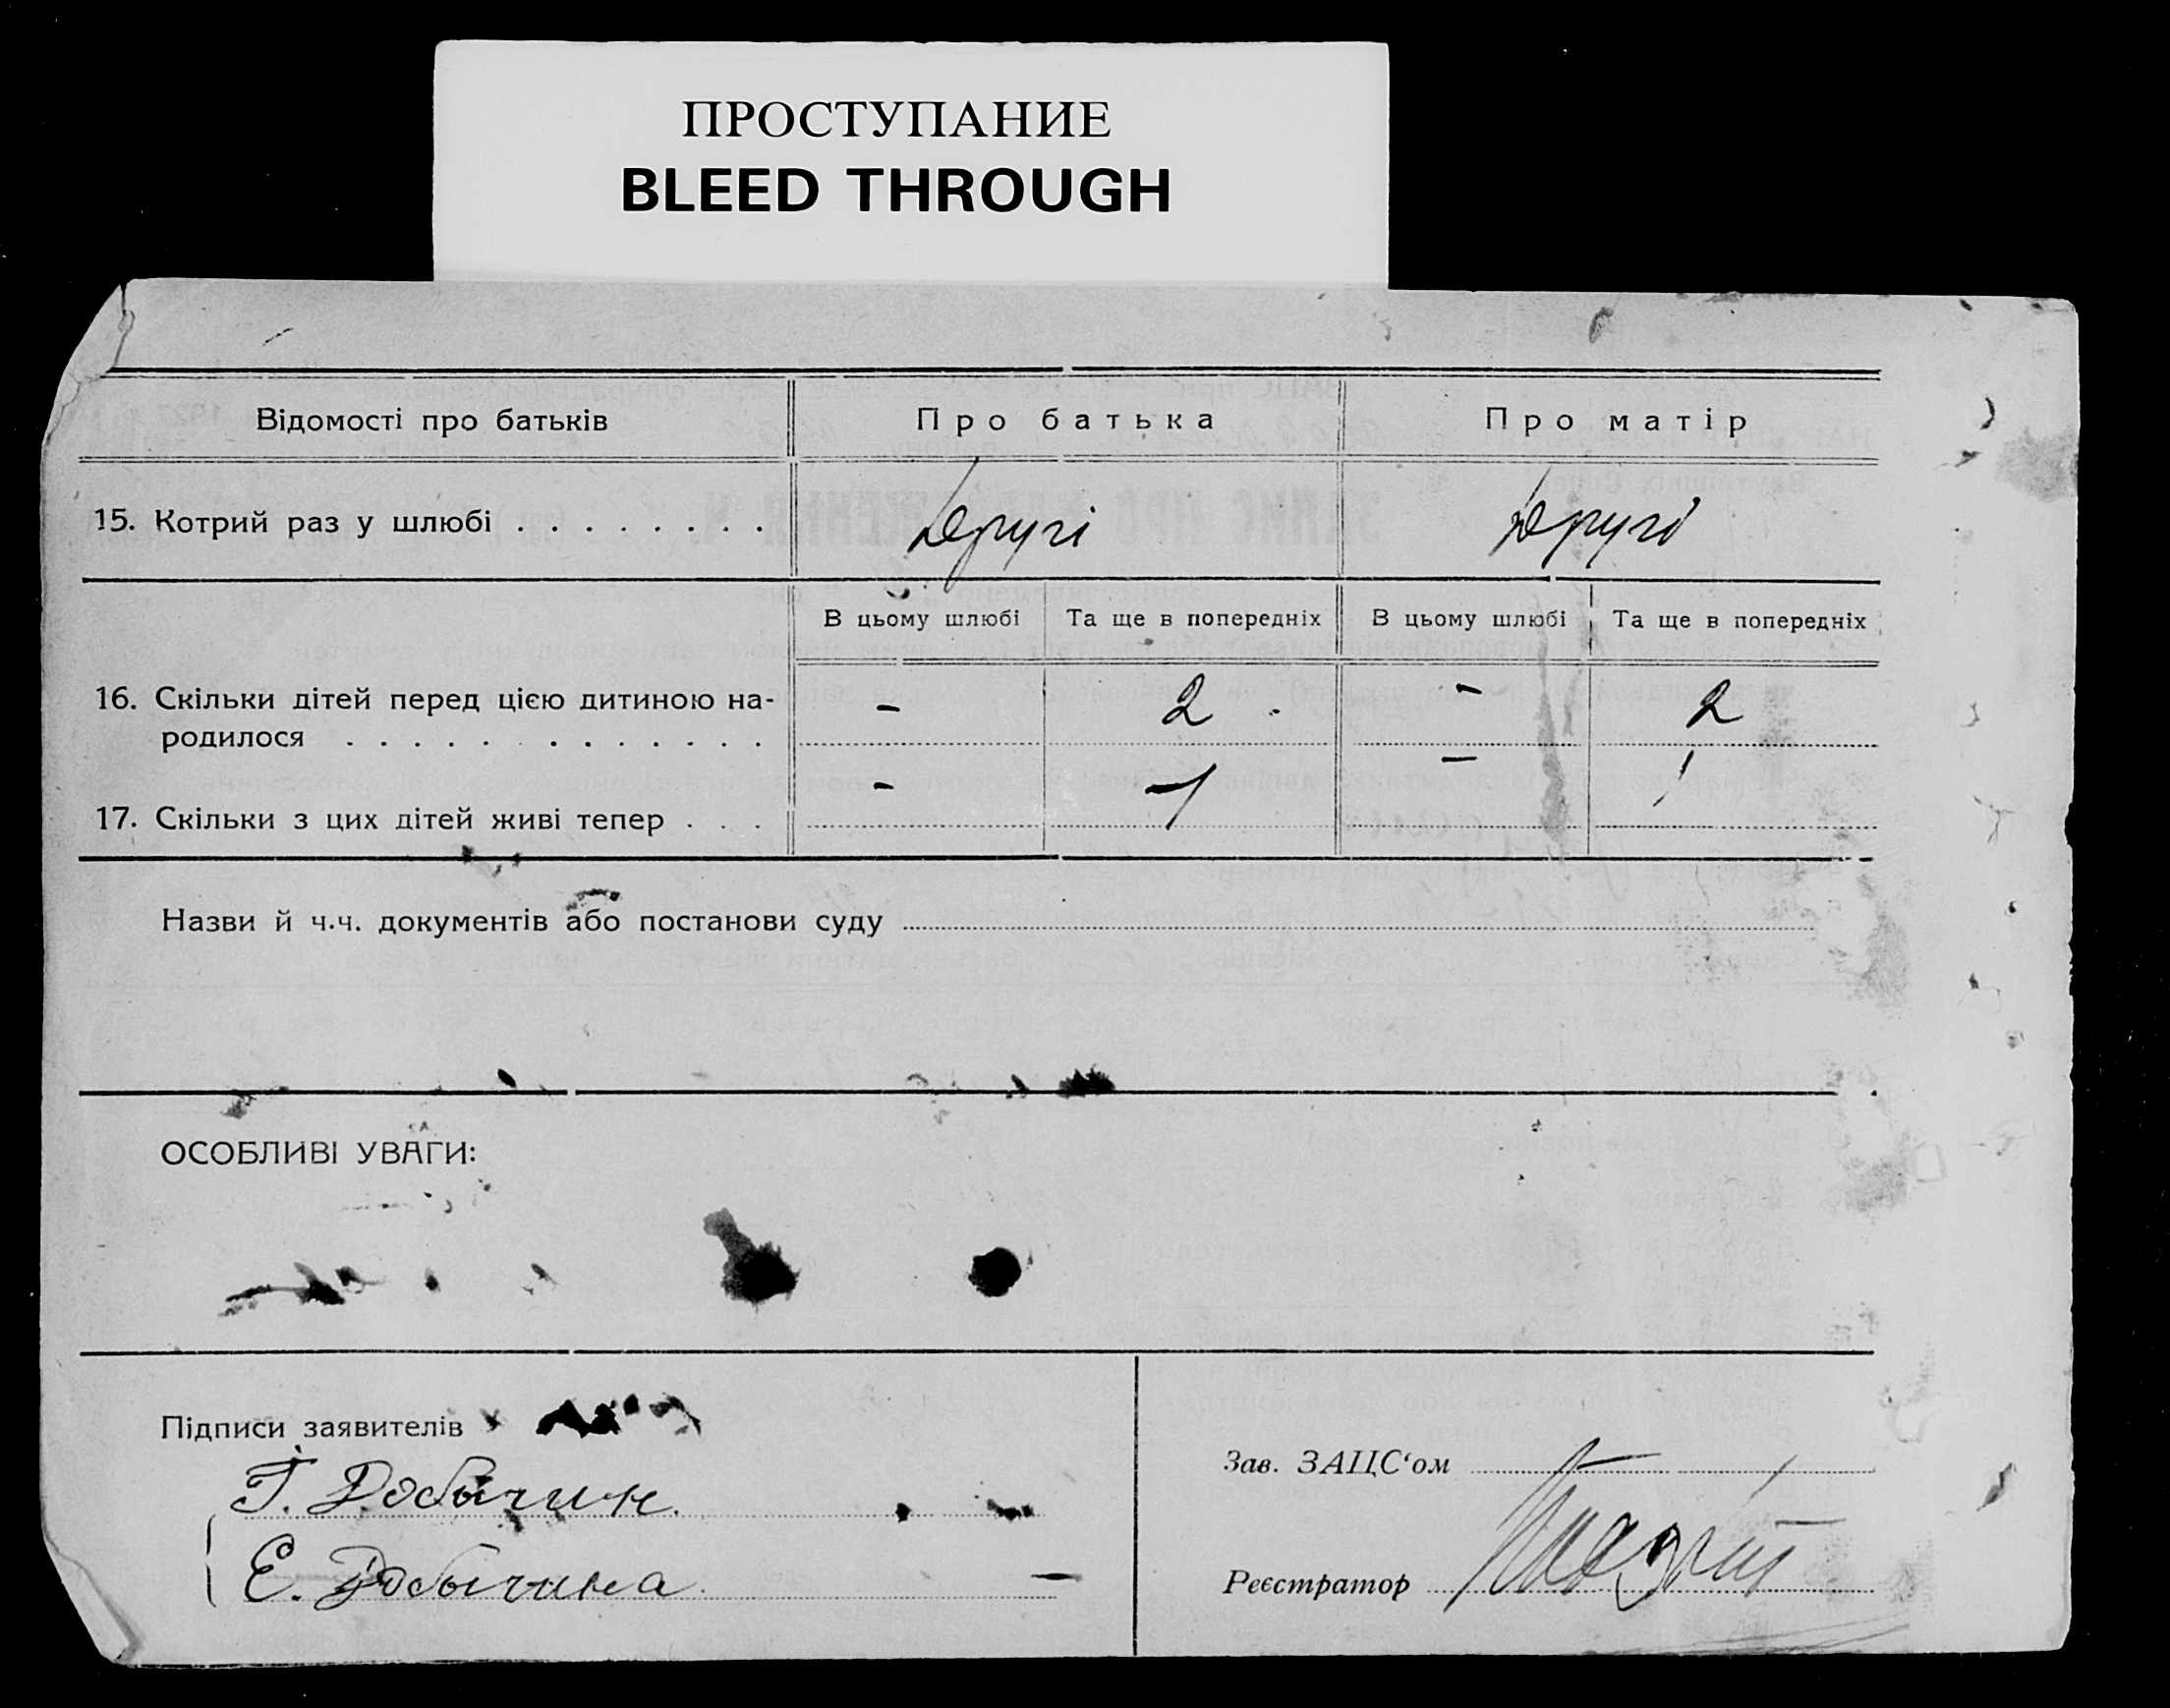 ПРОСТУПАНИЕ
BLEED THROUGH
Відомості про батьків
Про батька
Про матір
15. Котрий раз у шлюбі . . . . . . . .
Другі
Другі
В цьому шлюбі
Та ще в попередніх
В цьому шлюбі
Та ще в попередніх
16. Скільки дітей перед цією дитиною на-
родилося . . . . . . . . . . . . .
-
2
-
2
17. Скільки з цих дітей живі тепер . . .
-
1
-
1
Назви й ч.ч. документів або постанови суду
ОСОБЛИВІ УВАГИ:
Підписи заявителів
Г. Добычин.
Е. Добычина
Зав. ЗАЦС‘ом
Реєстратор